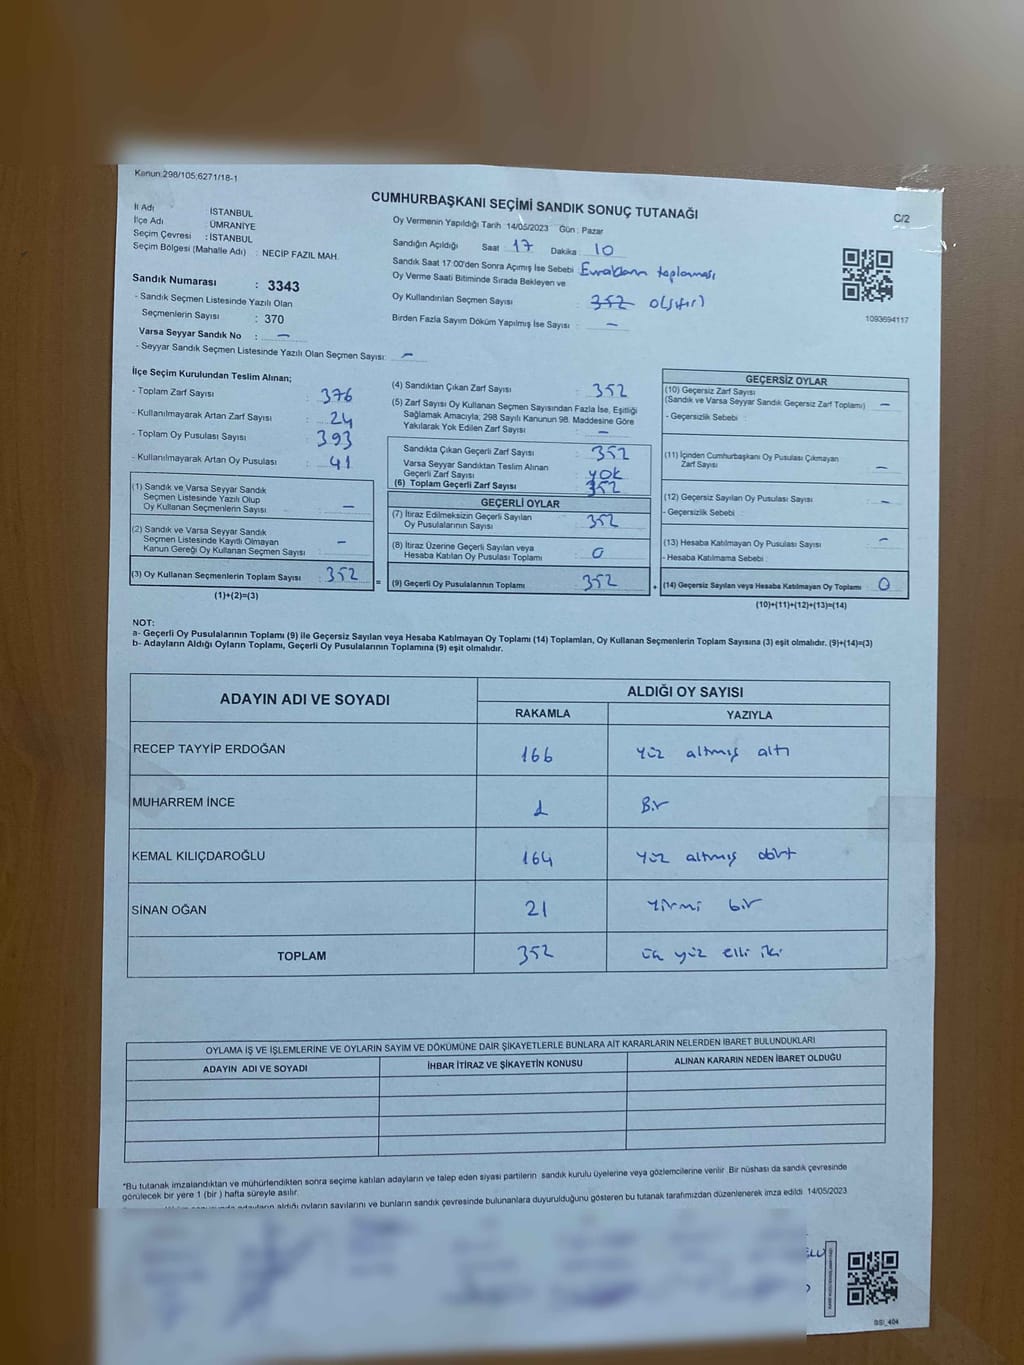 Kanun:298/105,6271/18-1
CUMHURBAŞKANI SEÇİMİ SANDIK SONUÇ TUTANAĞI
C/2
İl Adı : İSTANBUL
İlçe Adı : ÜMRANİYE
Seçim Çevresi : İSTANBUL
Seçim Bölgesi (Mahalle Adı) : NECİP FAZIL MAH.
Oy Vermenin Yapıldığı Tarih 14/05/2023 Gün : Pazar
Sandığın Açıldığı Saat 17 Dakika 10
Sandık Saat 17:00'den Sonra Açımış İse Sebebi Evrakların toplanması
Oy Verme Saati Bitiminde Sırada Bekleyen ve
Oy Kullandırılan Seçmen Sayısı : 352 0(sıfır)
Birden Fazla Sayım Döküm Yapılmış İse Sayısı : —
1093694117
Sandık Numarası : 3343
- Sandık Seçmen Listesinde Yazılı Olan
Seçmenlerin Sayısı : 370
Varsa Seyyar Sandık No : —
- Seyyar Sandık Seçmen Listesinde Yazılı Olan Seçmen Sayısı: —
İlçe Seçim Kurulundan Teslim Alınan;
- Toplam Zarf Sayısı : 376
- Kullanılmayarak Artan Zarf Sayısı : 24
- Toplam Oy Pusulası Sayısı : 393
- Kullanılmayarak Artan Oy Pusulası : 41
(1) Sandık ve Varsa Seyyar Sandık
Seçmen Listesinde Yazılı Olup
Oy Kullanan Seçmenlerin Sayısı : —
(2) Sandık ve Varsa Seyyar Sandık
Seçmen Listesinde Kayıtlı Olmayan
Kanun Gereği Oy Kullanan Seçmen Sayısı : —
(3) Oy Kullanan Seçmenlerin Toplam Sayısı : 352
(1)+(2)=(3)
(4) Sandıktan Çıkan Zarf Sayısı : 352
(5) Zarf Sayısı Oy Kullanan Seçmen Sayısından Fazla İse, Eşitliği
Sağlamak Amacıyla; 298 Sayılı Kanunun 98. Maddesine Göre
Yakılarak Yok Edilen Zarf Sayısı : —
Sandıkta Çıkan Geçerli Zarf Sayısı : 352
Varsa Seyyar Sandıktan Teslim Alınan
Geçerli Zarf Sayısı : yok
(6) Toplam Geçerli Zarf Sayısı : 352
GEÇERLİ OYLAR
(7) İtiraz Edilmeksizin Geçerli Sayılan
Oy Pusulalarının Sayısı : 352
(8) İtiraz Üzerine Geçerli Sayılan veya
Hesaba Katılan Oy Pusulası Toplamı : 0
= (9) Geçerli Oy Pusulalarının Toplamı : 352
GEÇERSİZ OYLAR
(10) Geçersiz Zarf Sayısı
(Sandık ve Varsa Seyyar Sandık Geçersiz Zarf Toplamı) : —
- Geçersizlik Sebebi :
(11) İçinden Cumhurbaşkanı Oy Pusulası Çıkmayan
Zarf Sayısı : —
(12) Geçersiz Sayılan Oy Pusulası Sayısı : —
- Geçersizlik Sebebi :
(13) Hesaba Katılmayan Oy Pusulası Sayısı : —
- Hesaba Katılmama Sebebi :
+ (14) Geçersiz Sayılan veya Hesaba Katılmayan Oy Toplamı : 0
(10)+(11)+(12)+(13)=(14)
NOT:
a- Geçerli Oy Pusulalarının Toplamı (9) ile Geçersiz Sayılan veya Hesaba Katılmayan Oy Toplamı (14) Toplamları, Oy Kullanan Seçmenlerin Toplam Sayısına (3) eşit olmalıdır. (9)+(14)=(3)
b- Adayların Aldığı Oyların Toplamı, Geçerli Oy Pusulalarının Toplamına (9) eşit olmalıdır.
ADAYIN ADI VE SOYADI ALDIĞI OY SAYISI
RAKAMLA YAZIYLA
RECEP TAYYİP ERDOĞAN 166 Yüz altmış altı
MUHARREM İNCE 1 Bir
KEMAL KILIÇDAROĞLU 164 Yüz altmış dört
SİNAN OĞAN 21 Yirmi bir
TOPLAM 352 üç yüz elli iki
OYLAMA İŞ VE İŞLEMLERİNE VE OYLARIN SAYIM VE DÖKÜMÜNE DAİR ŞİKAYETLERLE BUNLARA AİT KARARLARIN NELERDEN İBARET BULUNDUKLARI
ADAYIN ADI VE SOYADI İHBAR İTİRAZ VE ŞİKAYETİN KONUSU ALINAN KARARIN NEDEN İBARET OLDUĞU
*Bu tutanak imzalandıktan ve mühürlendikten sonra seçime katılan adayların ve talep eden siyasi partilerin sandık kurulu üyelerine veya gözlemcilerine verilir. Bir nüshası da sandık çevresinde
görülecek bir yere 1 (bir ) hafta süreyle asılır.
aldığı oyların sayılarını ve bunların sandık çevresinde bulunanlara duyurulduğunu gösteren bu tutanak tarafımızdan düzenlenerek imza edildi. 14/05/2023
BSI_404